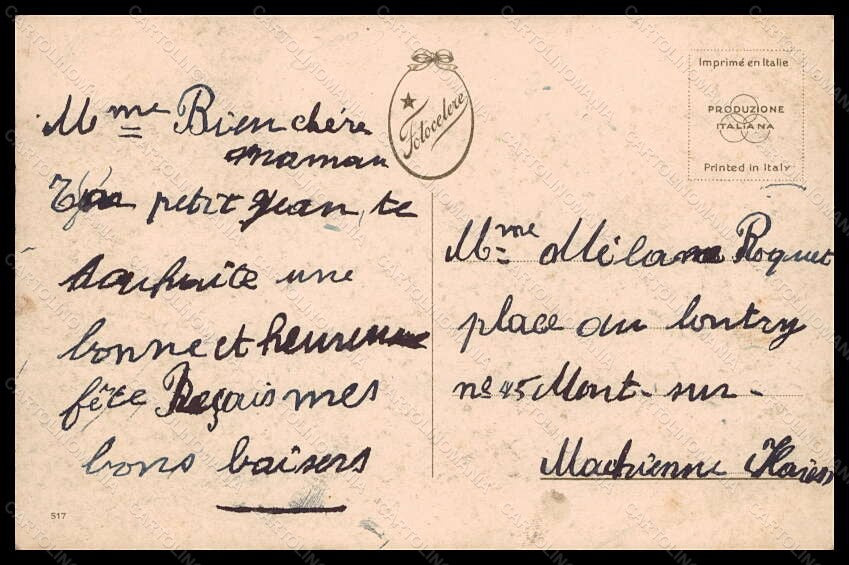 Mme Bien chère
maman
Ton petit Jean te
souhaite une
bonne et heureuse
fête Reçois mes
bons baisers
517
Fotocelere
Imprimé en Italie
PRODUZIONE
ITALIANA
Printed in Italy
Mme Roquet
place du
no 45 Mont-sur-